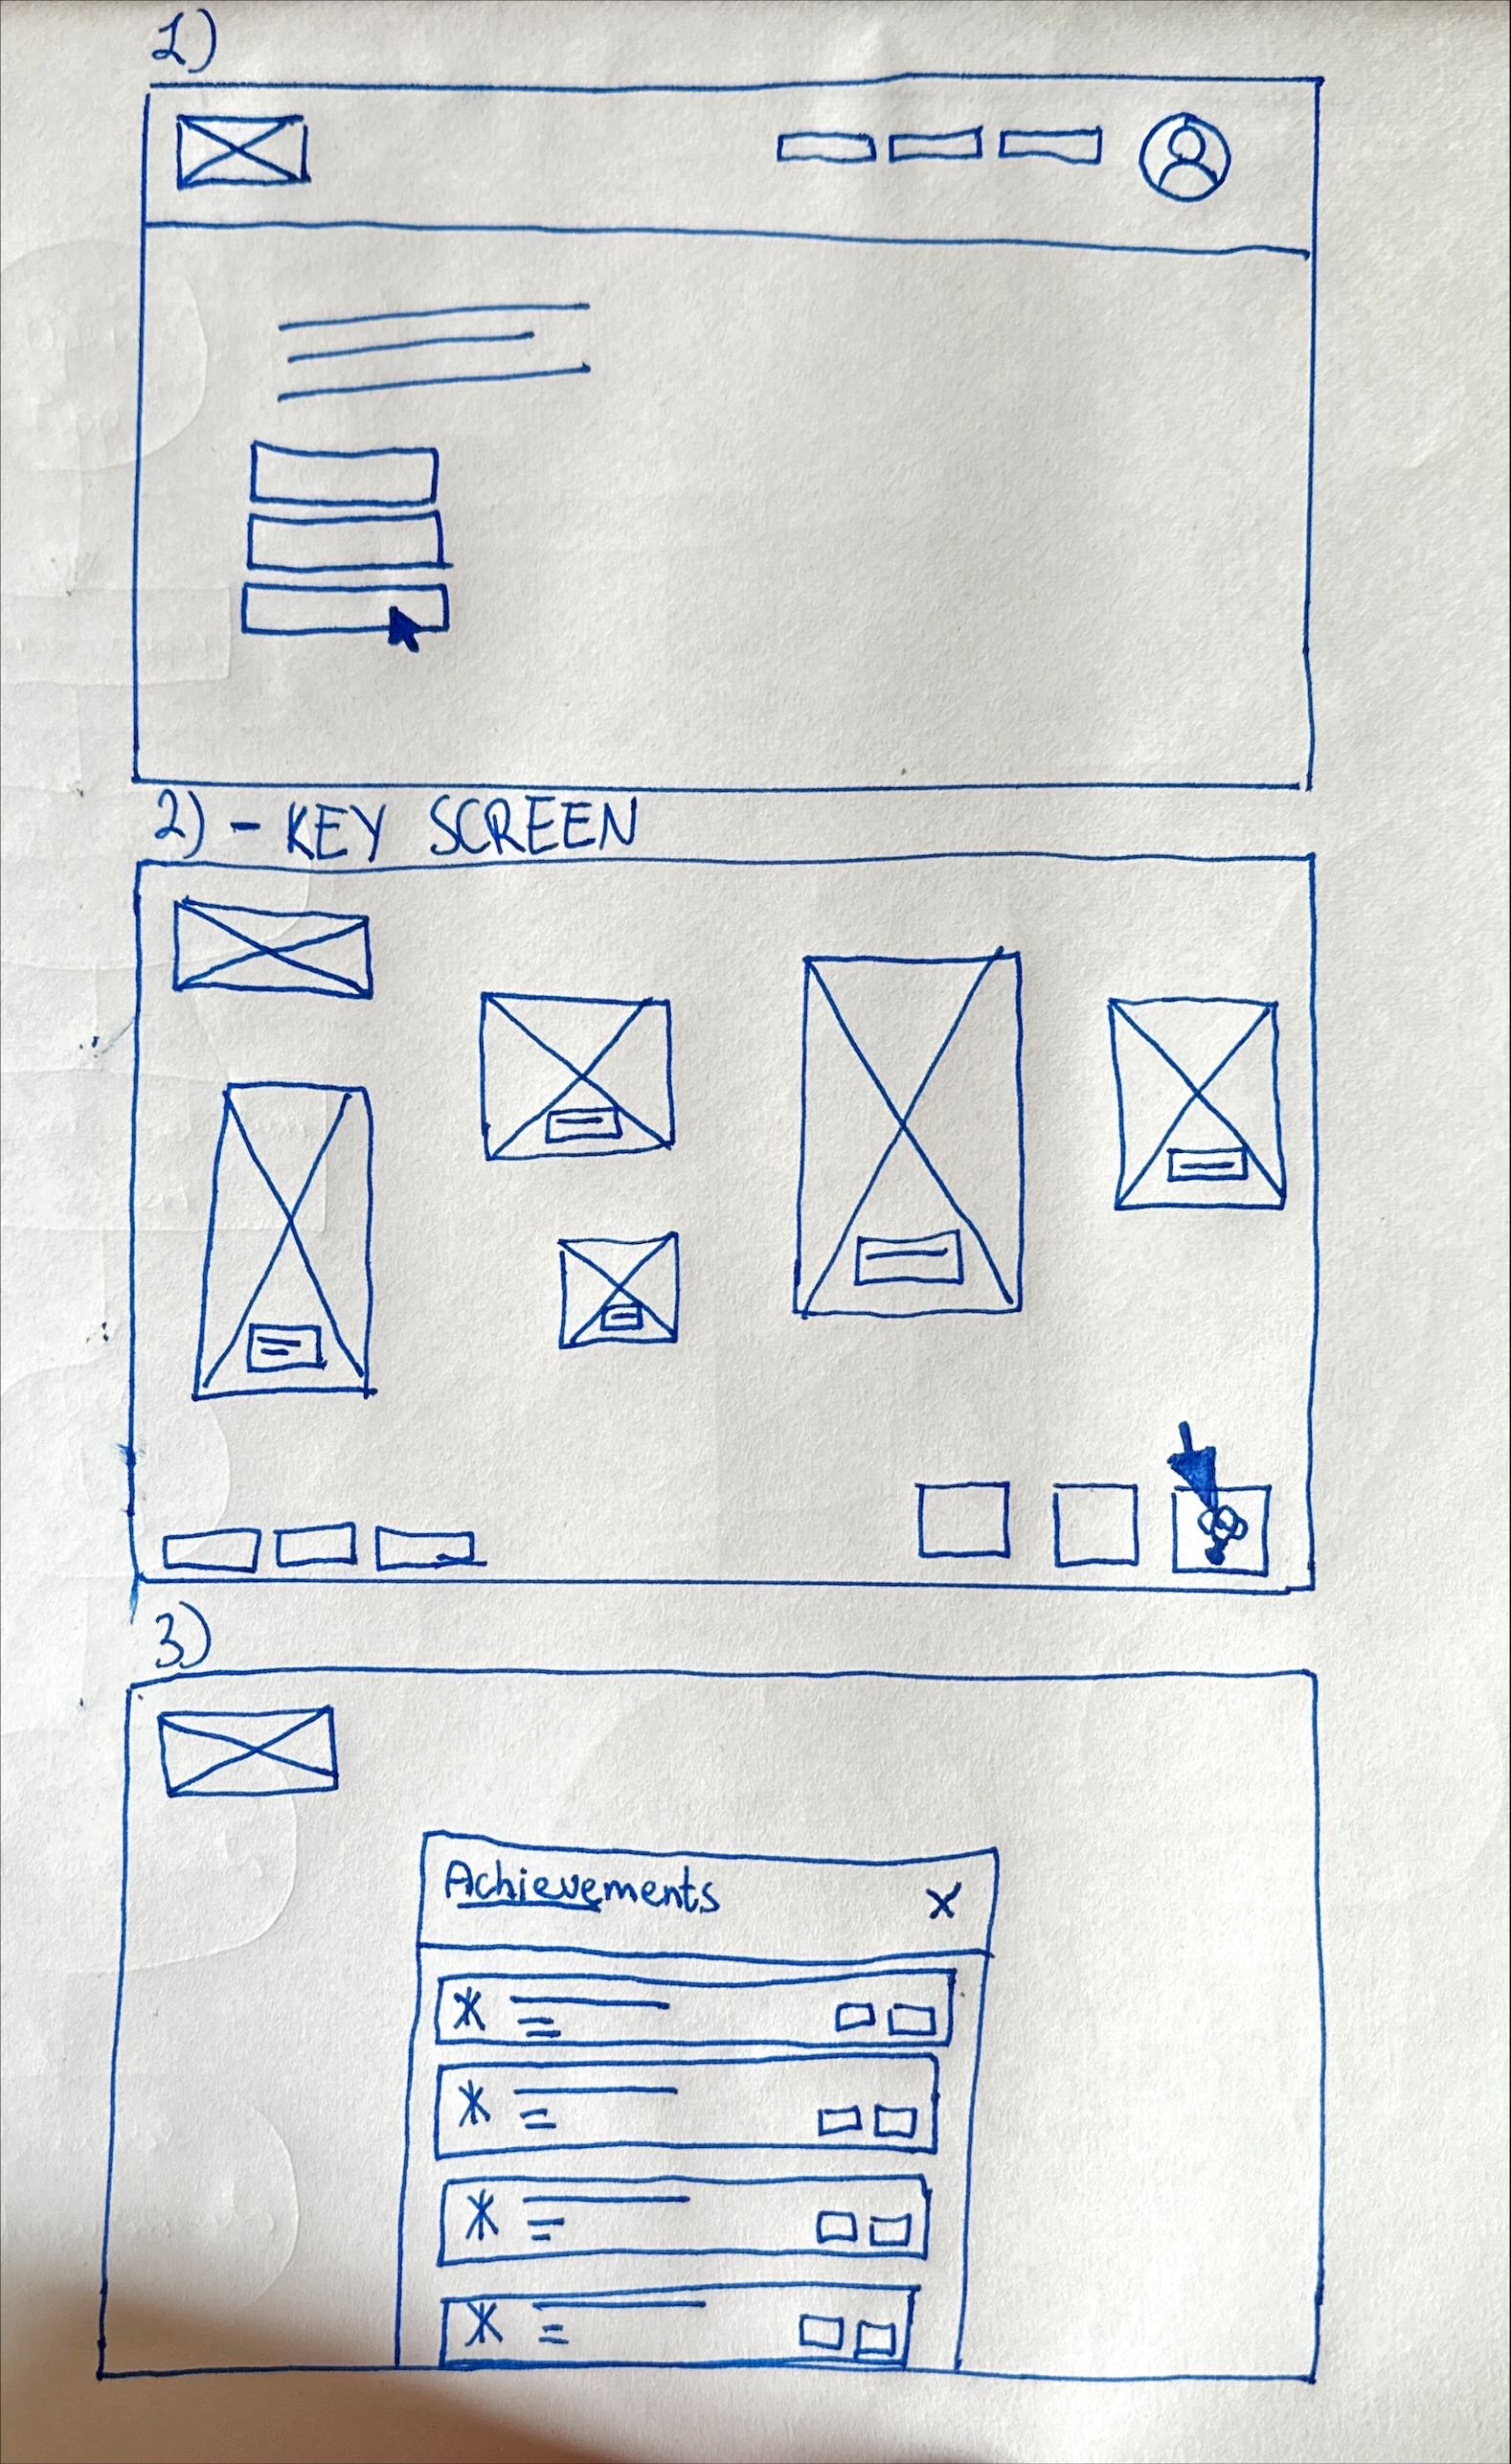 1)
2) - KEY SCREEN
3)
Achievements X